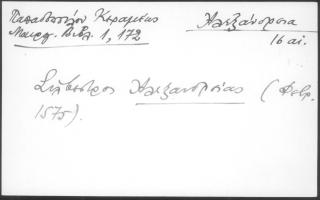 Παπαδοπούλου Κεραμέως
Μαυρογ. Βιβλ. 1, 172
Αλεξάνδρεια
16 αι.
Σίλβεστρος Αλεξανδρείας (Φεβρ.
1575).